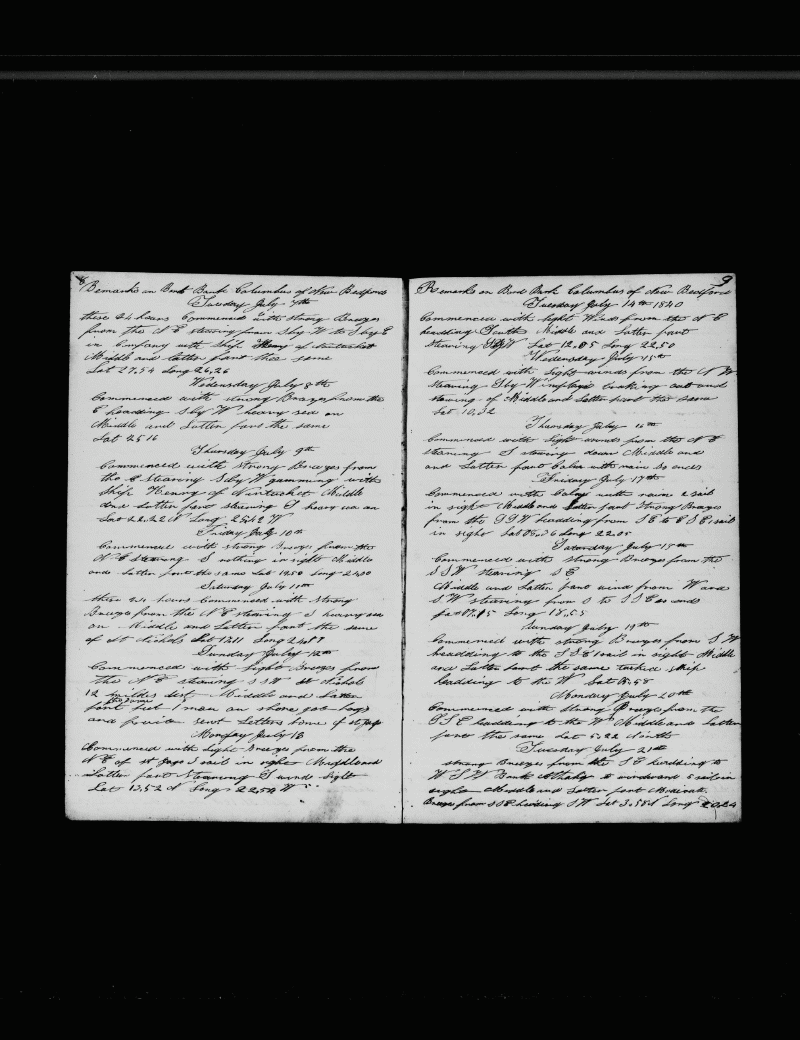 8
Remarks on Bord Bark Columbus of New Bedford
Tuesday July 7th
these 24 hours Commenced with strong Breezes
from the N E steering from S by W to S by E
in Company with Ship Henry of Nantucket
Middle and latter part the same
Lat 27,54 Long 26,26
Wedensday July 8th
Commenced with strong Breezes from the
E headding S by W heavy sea on
Middle and Latter part the same
Lat 25 16
Thursday July 9th
Commenced with strong Breezes from
the E stearing S by W gamming with
Ship Henry of Nantucket Middle
and latter part stearing S heavy sea on
Lat 22,22 N Long 25,42 W
Friday July 10th
Commenced with strong Breezes from the
N E stearing S nothing in sight Middle
and Latter part the same Lat 19,50 Long 24,30
Saturday July 11th
these 24 hours Commenced with strong
Breezes from the N E stearing S heavy sea
on Middle and Latter part the same
of st Nichols Lat 17,11 Long
Sunday July 12th
Commenced with light Breezes from
the N E stearing S S W st Nichols
12 mildes dist Middle and Latter
part the same 1 man on shore got hogs
and sent Letters home of st Jago
Monday July 13
Commenced with Light Breezes from the
N E of st Jago 1 sail in sight Midddle and
Latter part Stearing S wind light
Lat 13,52 N Long 22,54 W
9
Remarks on Bord Bark Columbus of New Bedford
Tuesday July 14th 1840
Commenced with light Wind from the N E
headding South Middle and latter part
stearing S by W Lat 12,05 Long 22,50
Wednesday July 15th
Commenced with light winds from the N W
stearing S by W breaking out and
stowing of Middle and Latter part the same
Lat 10,32
Thursday July 16th
Commenced with light winds from the N E
stearing S stowing down Middle and
and Latter part Calm with rain
Friday July 17th
Commenced with Calms with rain 2 sail
in sight Middle and Latter part Strong Breezes
from the S S W headding from S E to E S E 1 sail
in sight Long 22 05
Saturday July 18th
Commenced with strong Breezes from the
S S W stearing S E
Middle and Latter part wind from W and
S W stearing from S to S S E
Lat 07,05 Long
Sunday July 19th
Commenced with strong Breezes from S W
headding to the S S E 1 sail in sight Middle
and Latter part the same tacked ship
headding to the W Lat
Monday July 20th
Commenced with Strong Breezes from the
S S E headding to the W Middle and latter
part the same Lat 5,22 North
Tuesday July 21st
strong Breezes from the S E headding to
W S W Bark to windward 2 sail in
sight Middle and Latter part Moderate
Breeze from S S E heading S W Lat 3,58 N Long 20,24